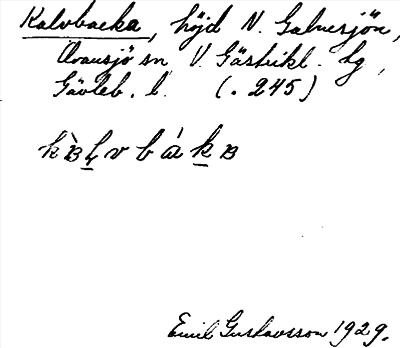 Kalvbacka, höjd N. Galvensjön,
Ovansjö sn V. Gästrikl. hg,
Gävleb. l. (. 245)
k B̀ ḻ v b á ḵ B
Emil Gustavsson 1929.